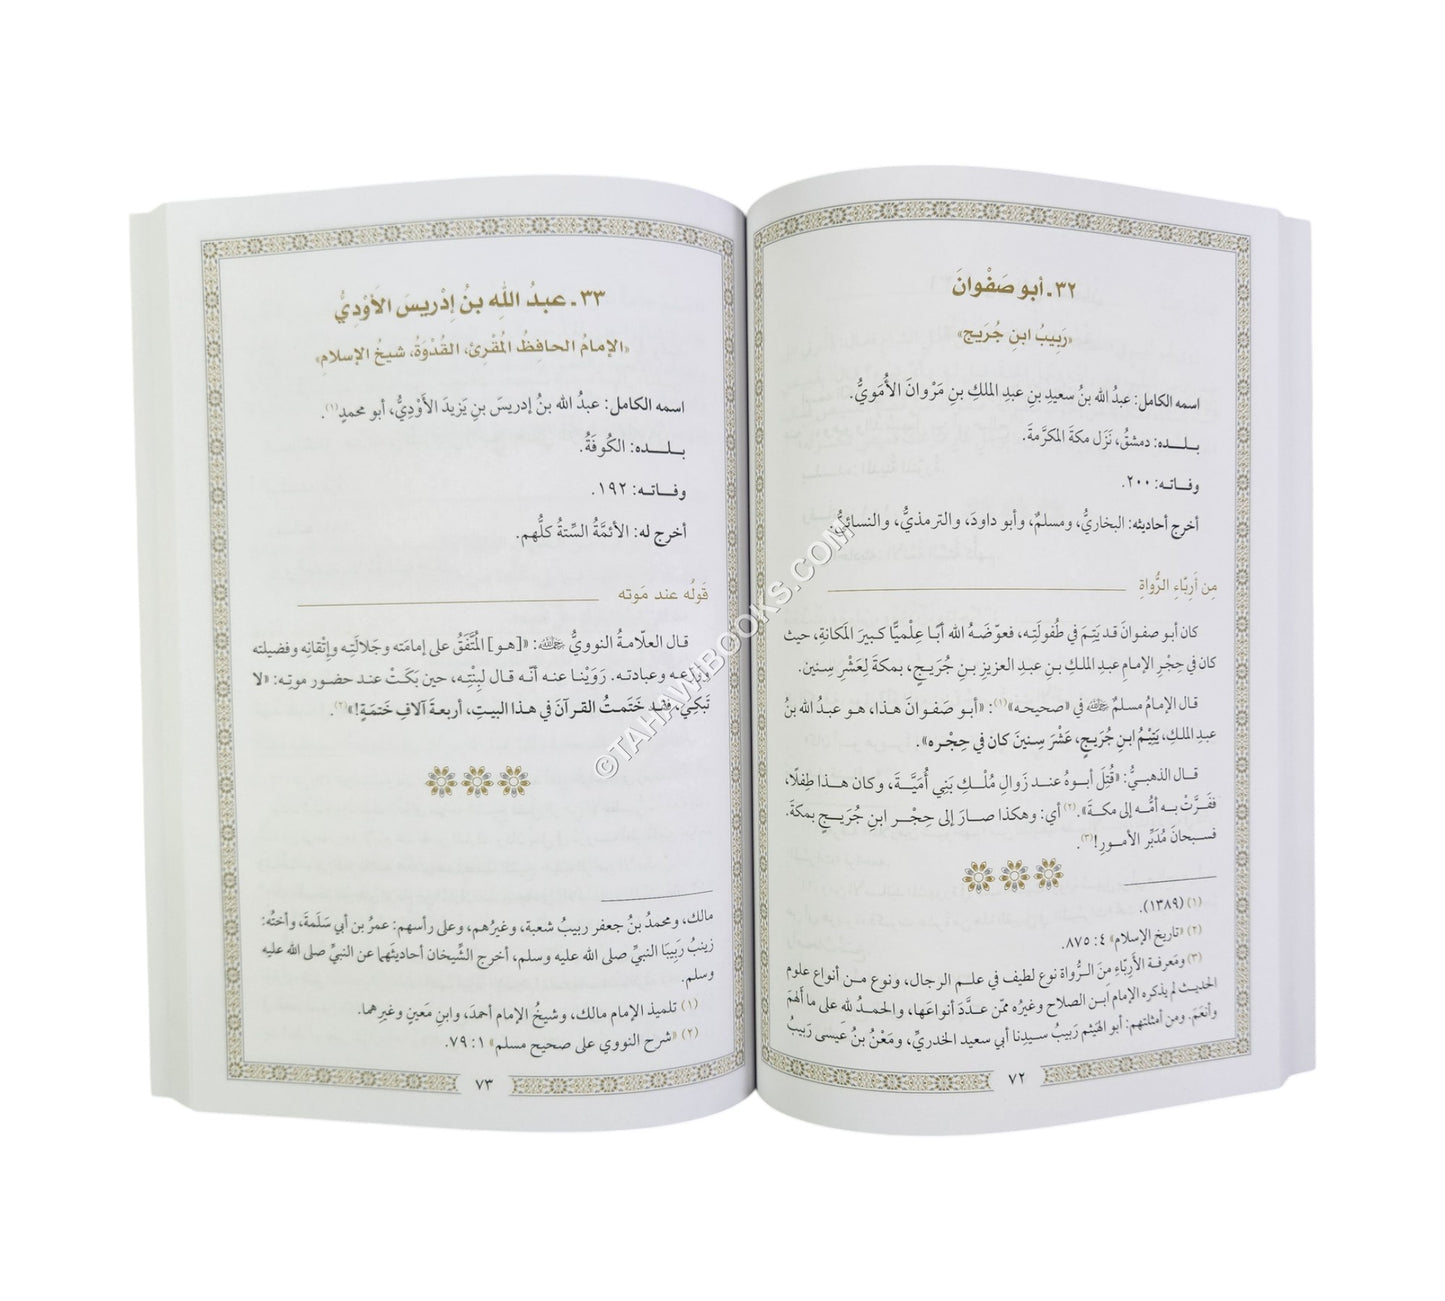 ٣٢ ـ أبو صَفْوانَ
«رَبِيبُ ابنِ جُرَيج»
اسمه الكامل: عبدُ الله بنُ سعيدِ بنِ عبدِ الملكِ بنِ مَرْوانَ الأُمَويُّ.
بـلـــده: دمشقُ، نَزَل مكةَ المكرَّمةَ.
وفـاتـه: ٢٠٠.
أخرج أحاديثه: البخاريُّ، ومسلمٌ، وأبو داودَ، والترمذيُّ، والنسائيُّ.
مِن أَرِبّاءِ الرُّواةِ
كان أبو صفوانَ قد يَتِمَ في طُفولَتِه، فعوّضَهُ الله أبًا عِلْميًّا كبيرَ المَكانةِ، حيث
كان في حِجْرِ الإمامِ عبدِ الملكِ بنِ عبدِ العزيزِ بنِ جُرَيجٍ، بمكةَ لِعَشْرِ سِنين.
قال الإمامُ مسلمٌ رحمه الله في «صحيحه»(١): «أبـو صَفـوانَ هـذا، هـو عبدُ اللهِ بنُ
عبدِ الملكِ، يَتِيْمُ ابنِ جُرَيجٍ، عَشْرَ سِنينَ كان في حِجْرِه».
قـال الذهبـيُّ: «قُتِلَ أبـوهُ عنـد زَوالِ مُلْـكِ بَنِي أُمَيَّـةَ، وكان هـذا طِفلًا،
ففَرَّتْ بـه أمُّـه إلى مكـةَ».(٢) أي: وهكـذا صـارَ إلى حِجْـرِ ابـنِ جُرَيـجٍ بمكـةَ.
فسبحانَ مُدَبِّرِ الأمـورِ!(٣).
(١) (١٣٨٩).
(٢) «تاريخ الإسلام» ٤: ٨٧٥.
(٣) ومَعرفـة الأَرِبّاءِ مِنَ الـرُّواة نوع لطيف في علـم الرجال، ونوع مـن أنواع علوم
الحديـث لم يذكره الإمام ابـن الصلاح وغيرُه ممّن عـدَّدَ أنواعَها، والحمـدُ لله على ما أَلهمَ
وأنعَمَ. ومن أمثلتهم: أبو الهَيثم رَبيبُ سـيدِنا أبي سعيد الخدريِّ، ومَعْنُ بنُ عَيسى رَبيبُ
٧٢
٣٣ ـ عبدُ اللهِ بنُ إدْريسَ الأَوْديُّ
«الإمامُ الحافِظُ المُقْرِئ، القُدْوَةُ، شيخُ الإسلامِ»
اسمه الكامل: عبدُ الله بنُ إدريسَ بنِ يَزِيدَ الأَوْدِيُّ، أبو محمدٍ(١).
بـلـــده: الكُوفَةُ.
وفـاتـه: ١٩٢.
أخرج له: الأئمَّةُ السِّتةُ كلُّهم.
قَولُه عند مَوته
قال العلّامةُ النوويُّ رحمه الله: «[هو] المُتَّفَقُ على إمامَته وجَلالَتِه وإتْقانِه وفضيلته
وورعه وعبادته. رَوَيْنا عنه أنّه قال لبِنْتِه، حين بَكَتْ عند حضور موتِه: «لا
تَبكِي، فقد خَتَمتُ القرآنَ في هذا البيتِ، أربعةَ آلافِ خَتمَةٍ!»(٢).
مالك، ومحمدُ بنُ جعفر ربيبُ شعبة، وغيرُهم، وعلى رأسهم: عمرُ بن أبي سَلَمةَ، وأختُه:
زينبُ رَبِيبَا النبيِّ صلى الله عليه وسلم، أخرج الشَّيخان أحاديثَهما عن النبيِّ صلى الله عليه
وسلم.
(١) تلميذ الإمام مالك، وشيخُ الإمام أحمدَ، وابنِ مَعينٍ وغيرِهما.
(٢) «شرح النووي على صحيح مسلم» ١: ٧٩.
٧٣
©TAHAWIBOOKS.COM